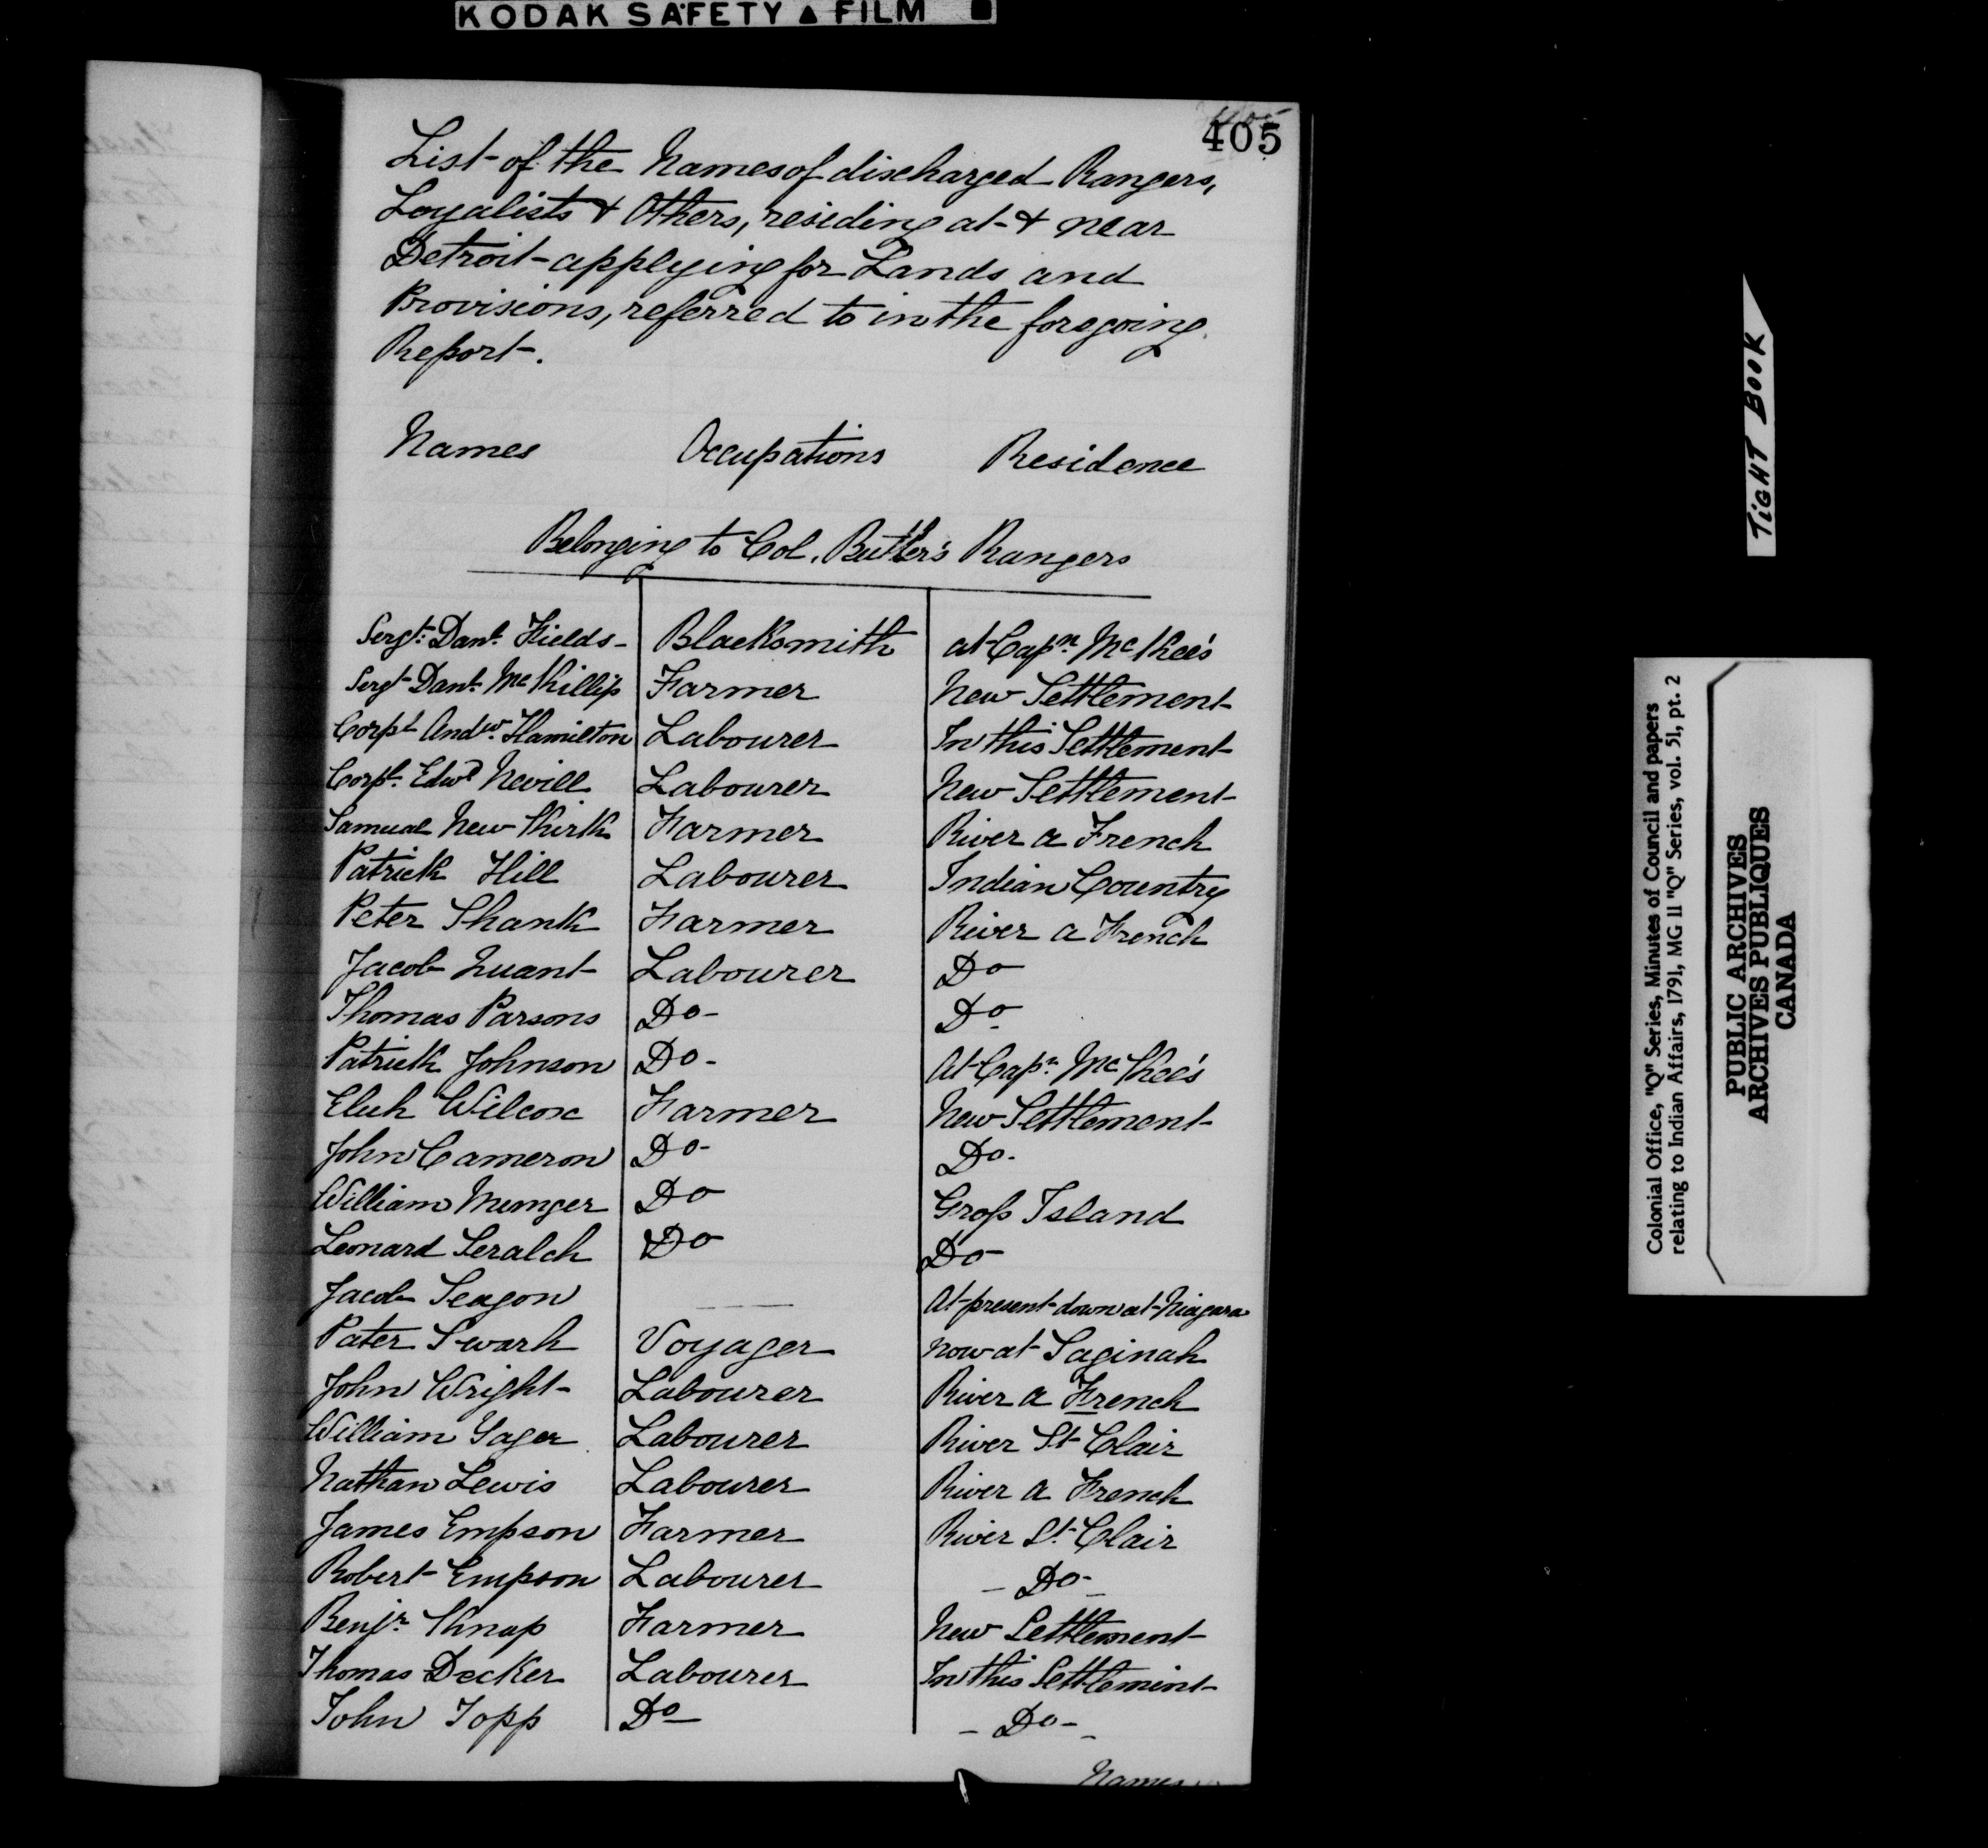 KODAK SAFETY ▲ FILM
405
List of the Names of discharged Rangers,
Loyalists & Others, residing at & near
Detroit applying for Lands and
Provisions, referred to in the foregoing
Report.
Names Occupations Residence
Belonging to Col. Butler's Rangers
Sergt. Danl. Fields Blacksmith at Capn. McKee's
Sergt Danl. McKillip Farmer New Settlement
Corpl Andw. Hamilton Labourer In this Settlement
Corpl. Edwd Nevill Labourer New Settlement
Samuel New Kirk Farmer River a French
Patrick Hill Labourer Indian Country
Peter Shank Farmer River a French
Jacob Quant Labourer Do
Thomas Parsons Do Do
Patrick Johnson Do At Capn. McKee's
Wilcox Farmer New Settlement
John Cameron Do Do
William Munger Do Gross Island
Leonard Do Do
Jacob Seagon At present down at Niagara
Pater Swark Voyager now at Saginah
John Wright Labourer River a French
William Yager Labourer River St Clair
Nathan Lewis Labourer River a French
James Empson Farmer River St. Clair
Robert Empson Labourer Do
Benjn. Knap Farmer New Settlement
Thomas Decker Labourer In this Settlemint
John Topp Do Do
Names
TIGHT BOOK
Colonial Office, "Q" Series, Minutes of Council and papers
relating to Indian Affairs, 1791, MG 11 "Q" Series, vol. 51, pt. 2
PUBLIC ARCHIVES
ARCHIVES PUBLIQUES
CANADA